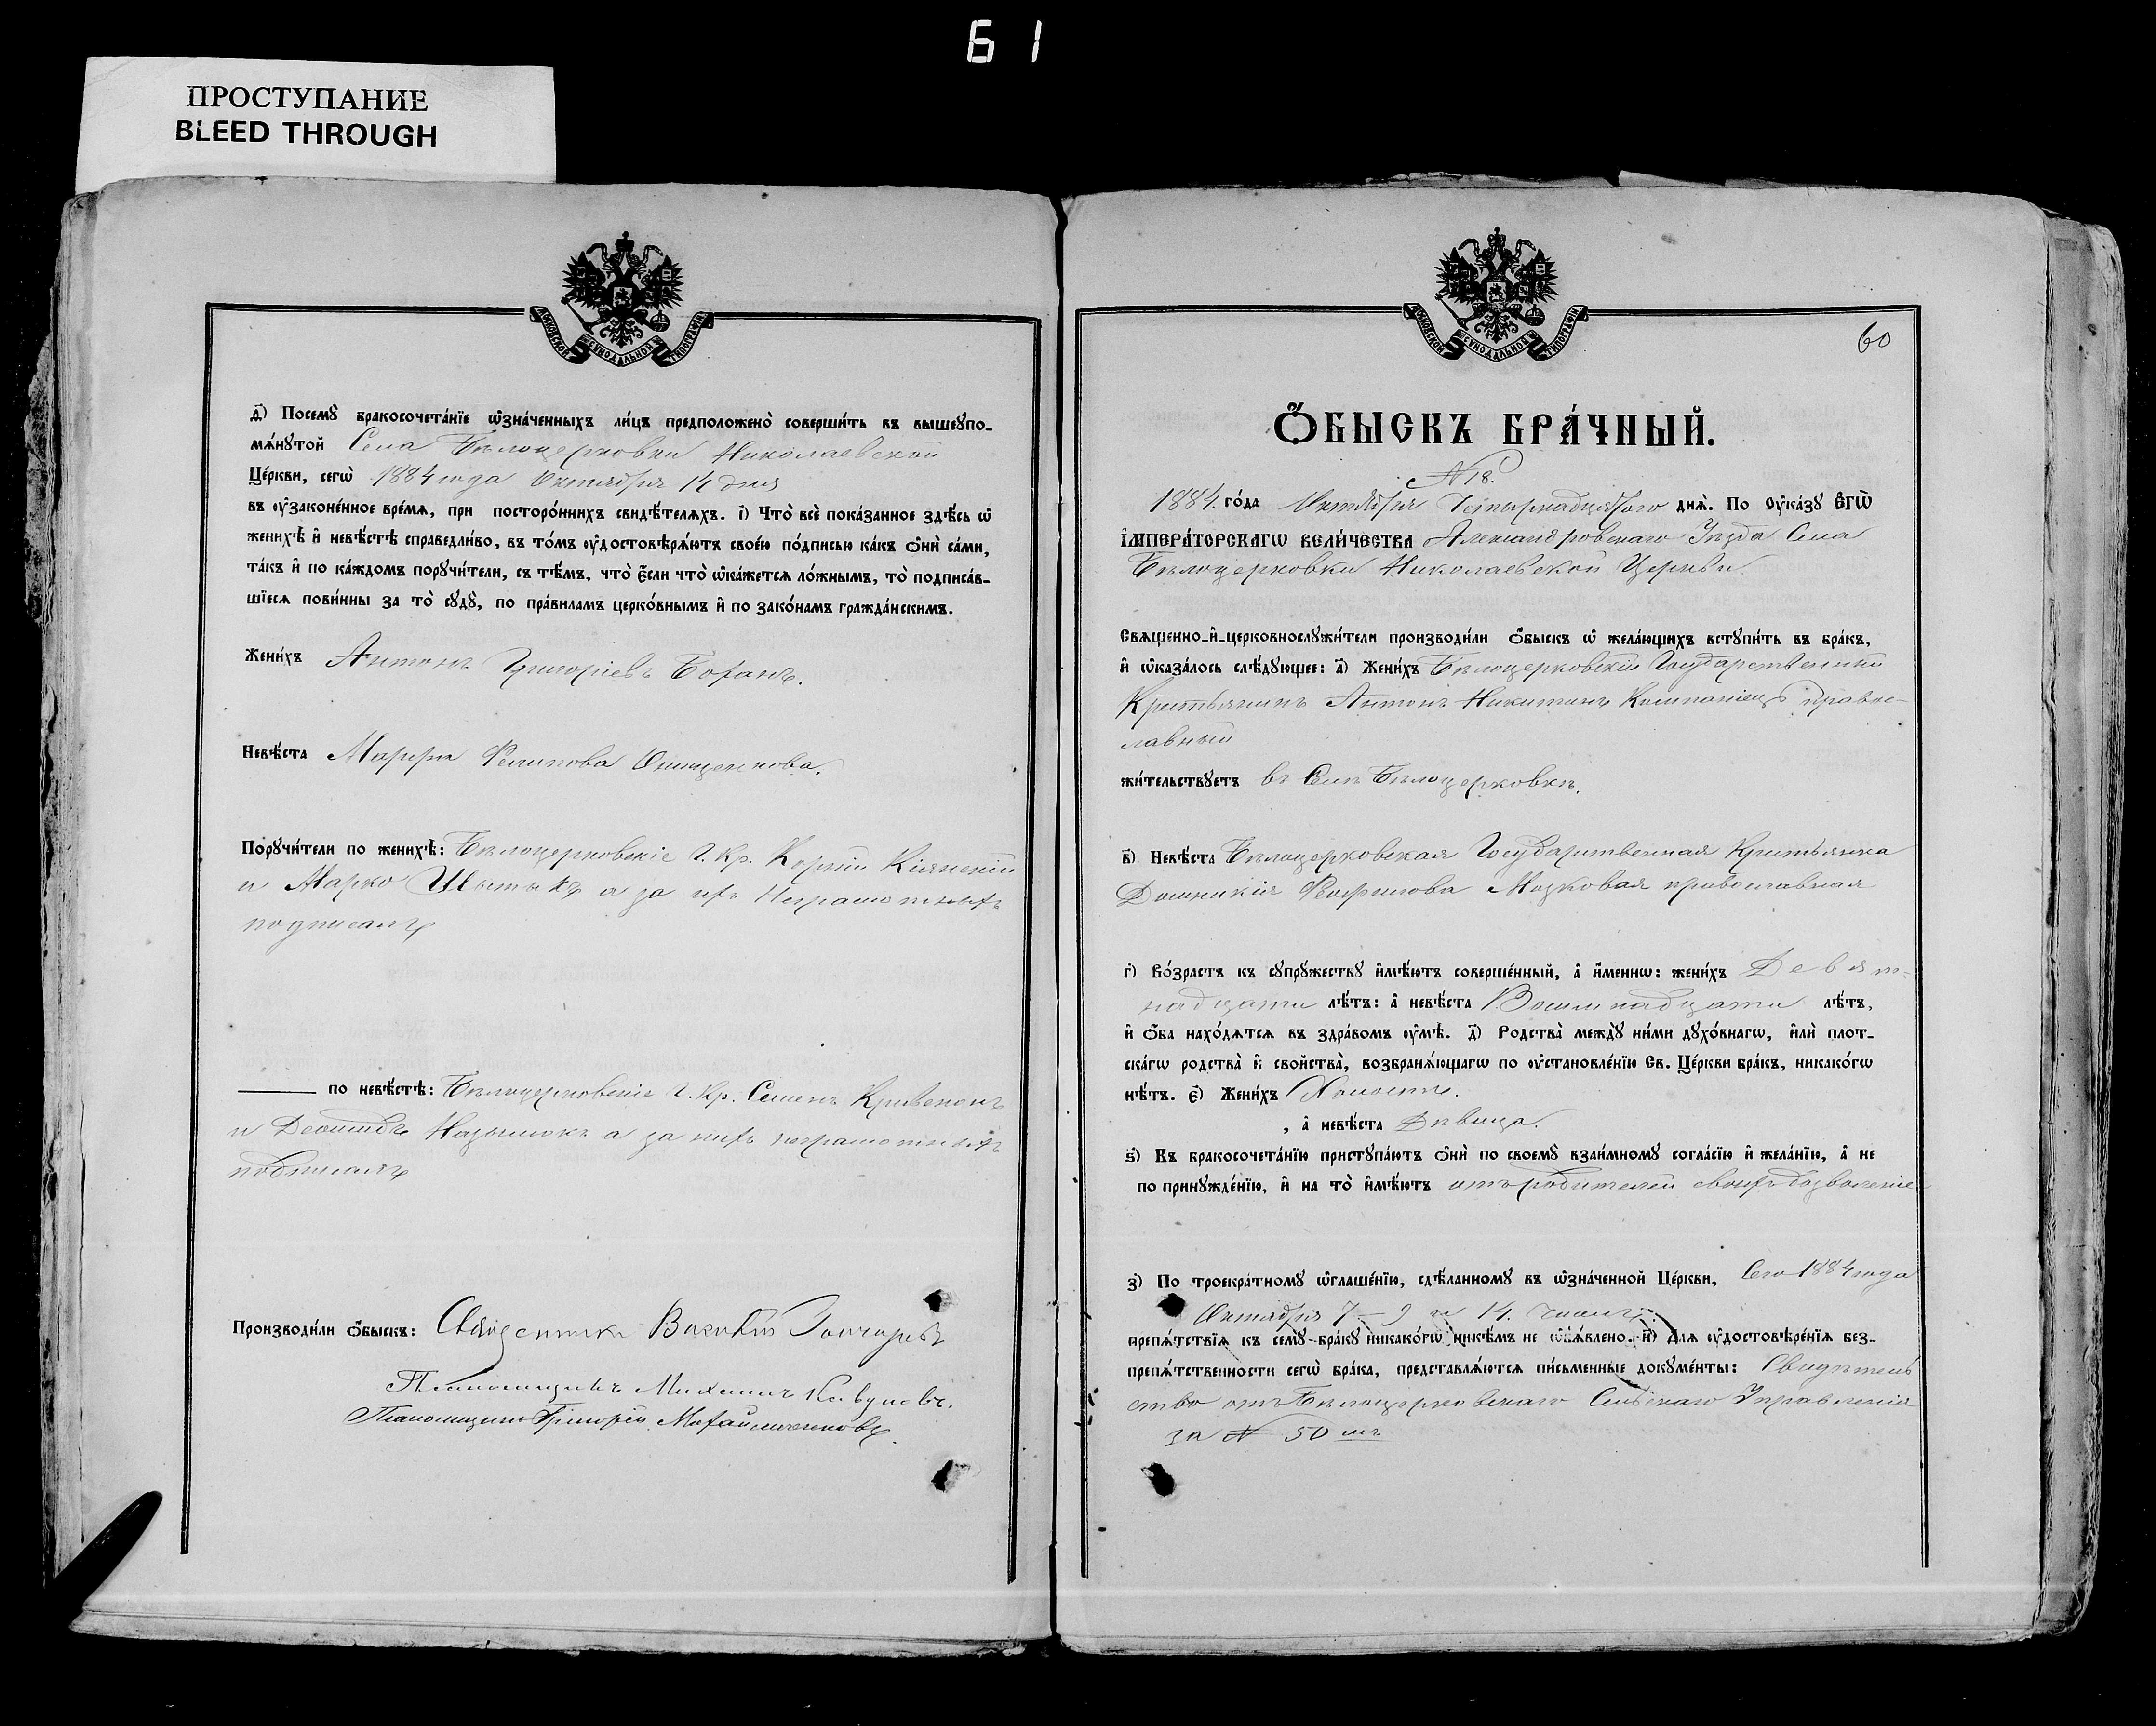 61
ПРОСТУПАНИЕ
BLEED THROUGH
МОСКОВСКОЙ СѴНОДАЛЬНОЙ ТИПОГРАФІИ
д҃) Посемꙋ̀ бракосочета́нїе ѡ҆зна́ченныхъ ли́цъ предположено̀ соверши́ть въ вышеꙋпо-
мѧ́нꙋтой Села Бѣлоцерковки Николаевской
Це́ркви, сегѡ̀ 1884 года Октября 14 дня
въ ᲂу҆законе́нное вре́мѧ, при посторо́ннихъ свидѣ́телѧхъ. і҃) Что̀ всѐ пока́занное здѣ́сь ѡ҆
женихѣ̀ и҆ невѣ́стѣ справедли́во, въ то́мъ ᲂу҆достовѣрѧ́ютъ свое́ю по́дписью ка́къ ѻ҆нѝ са́ми,
та́къ и҆ по ка́ждомъ порꙋчи́тели, съ тѣ́мъ, что̀ є҆́сли что̀ ѡ҆ка́жетсѧ ло́жнымъ, то̀ подписа́в-
шїесѧ пови́нны за то̀ сꙋдꙋ̀, по пра́виламъ церко́внымъ и҆ по зако́намъ гражда́нскимъ.
Жени́хъ Антонъ Григоріевъ Боханъ.
Невѣ́ста Марфа Филипова Онищенкова.
Порꙋчи́тели по женихѣ̀: Бѣлоцерковскіе Г. Кр. Корній
и Марко а за ихъ неграмотныхъ
подписалъ
по невѣ́стѣ: Бѣлоцерковскіе Г. Кр. Семенъ
и а за нихъ неграмотныхъ
подписалъ
Производи́ли ѻ҆́быскъ: Священникъ Василій Гончаровъ
Псаломщикъ Михаилъ Кавуновъ.
Псаломщикъ Григорій
МОСКОВСКОЙ СѴНОДАЛЬНОЙ ТИПОГРАФІИ
60
Ѻ҆́БЫСКЪ БРА́ЧНЫЙ.
№ 18.
1884. го́да Октября Четырнадцятого днѧ̀. По ᲂу҆ка́зꙋ Є҆ГѠ̀
І҆МПЕРА́ТОРСКАГѠ ВЕЛИ́ЧЕСТВА Александровскаго Уѣзда Села
Бѣлоцерковки Николаевской Церкви
Свѧщенно-и҆-церковнослꙋжи́тели производи́ли ѻ҆́быскъ ѡ҆ жела́ющихъ встꙋпи́ть въ бра́къ,
и҆ ѡ҆каза́лось слѣ́дꙋющее: а҃) Жени́хъ Бѣлоцерковскій Государственный
Крестьянинъ Антонъ Никитинъ Компаніецъ право-
славный
жи́тельствꙋетъ въ Селѣ Бѣлоцерковкѣ.
в҃) Невѣ́ста Бѣлоцерковская Государственная Крестьянка
Домникія Мозковая православная
г҃) Во́зрастъ къ сꙋпрꙋ́жествꙋ и҆мѣ́ютъ соверше́нный, а҆ и҆́меннѡ: жени́хъ Девят-
надцати лѣ́тъ: а҆ невѣ́ста Восемнадцати лѣ́тъ,
и҆ ѻ҆́ба нахо́дѧтсѧ въ здра́вомъ ᲂу҆мѣ̀. д҃) Родства̀ междꙋ̀ ни́ми дꙋхо́внагѡ, и҆лѝ плот-
ска́гѡ родства̀ и҆ свойства̀, возбранѧ́ющагѡ по ᲂу҆становле́нїю Св. Це́ркви бра́къ, никако́гѡ
нѣ́тъ. є҃) Жени́хъ Холостъ.
, а҆ невѣ́ста Дѣвица.
ѕ҃) Къ бракосочета́нїю пристꙋпа́ютъ ѻ҆нѝ по своемꙋ̀ взаи́мномꙋ согла́сїю и҆ жела́нїю, а҆ не
по принꙋжде́нїю, и҆ на то̀ и҆мѣ́ютъ отъ родителей своихъ дозволеніе
з҃) По троекра́тномꙋ ѡ҆глаше́нїю, сдѣ́ланномꙋ въ ѡ҆зна́ченной Це́ркви, Сего 1884 года
Октября 7 – 9 и 14. чиселъ.
препѧ́тствїѧ къ семꙋ̀ бра́кꙋ никако́гѡ никѣ́мъ не ѡ҆б̾ѧ́влено. и҃) Длѧ ᲂу҆достовѣре́нїѧ без-
препѧ́тственности сегѡ̀ бра́ка, представлѧ́ютсѧ пи́сьменные докꙋме́нты: Свидѣтель
ство отъ Бѣлоцерковскаго Сельскаго Управленія
за № 50 мъ